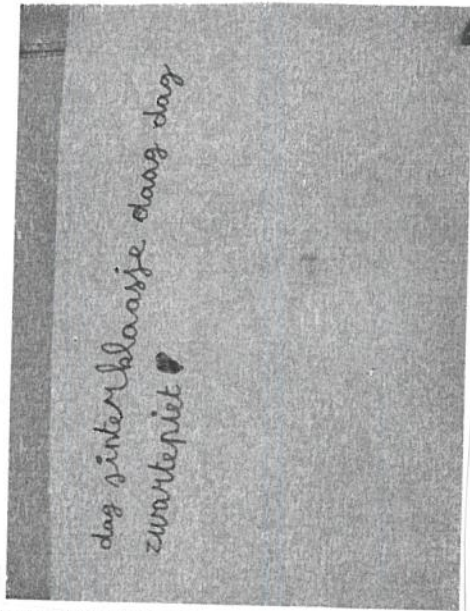 dag sinterklaasje daag dag
zwartepiet ♥